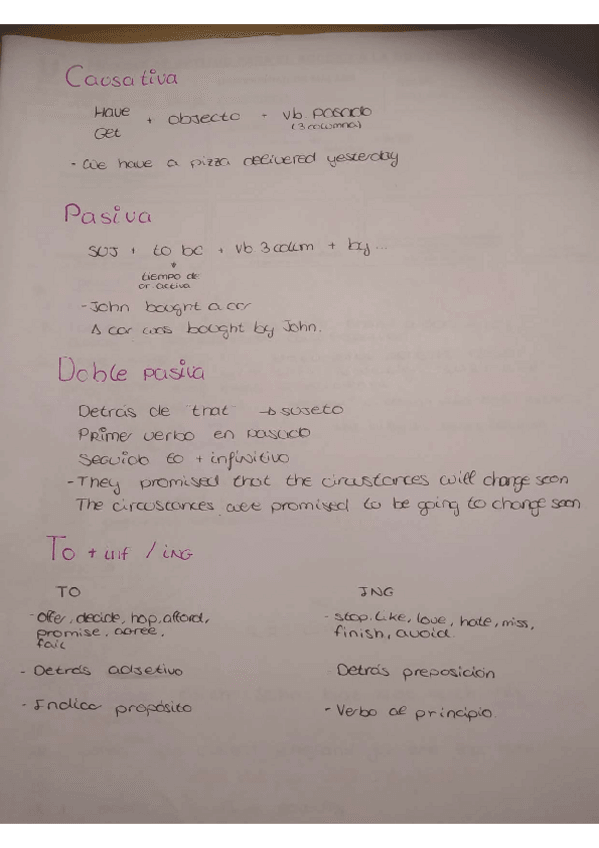 Causativa
Have
Get
+ objecto + vb. pasado
(3 columna)
- We have a pizza delivered yesterday
Pasiva
SUJ + to be + vb 3 colum + by...
tiempo de
or. activa
- John bought a car
A car was bought by John.
Doble pasiva
Detrás de "that" → sujeto
Primer verbo en pasado
Seguido to + infinitivo
- They promised that the circustances will change soon
The circustances were promised to be going to change soon
To + inf / ING
TO
ING
- Offer, decide, hop, afford,
promise, agree,
fail
- stop, like, love, hate, miss,
finish, avoid.
- Detrás adjetivo
Detrás preposición
- Indica propósito
- Verbo al principio.